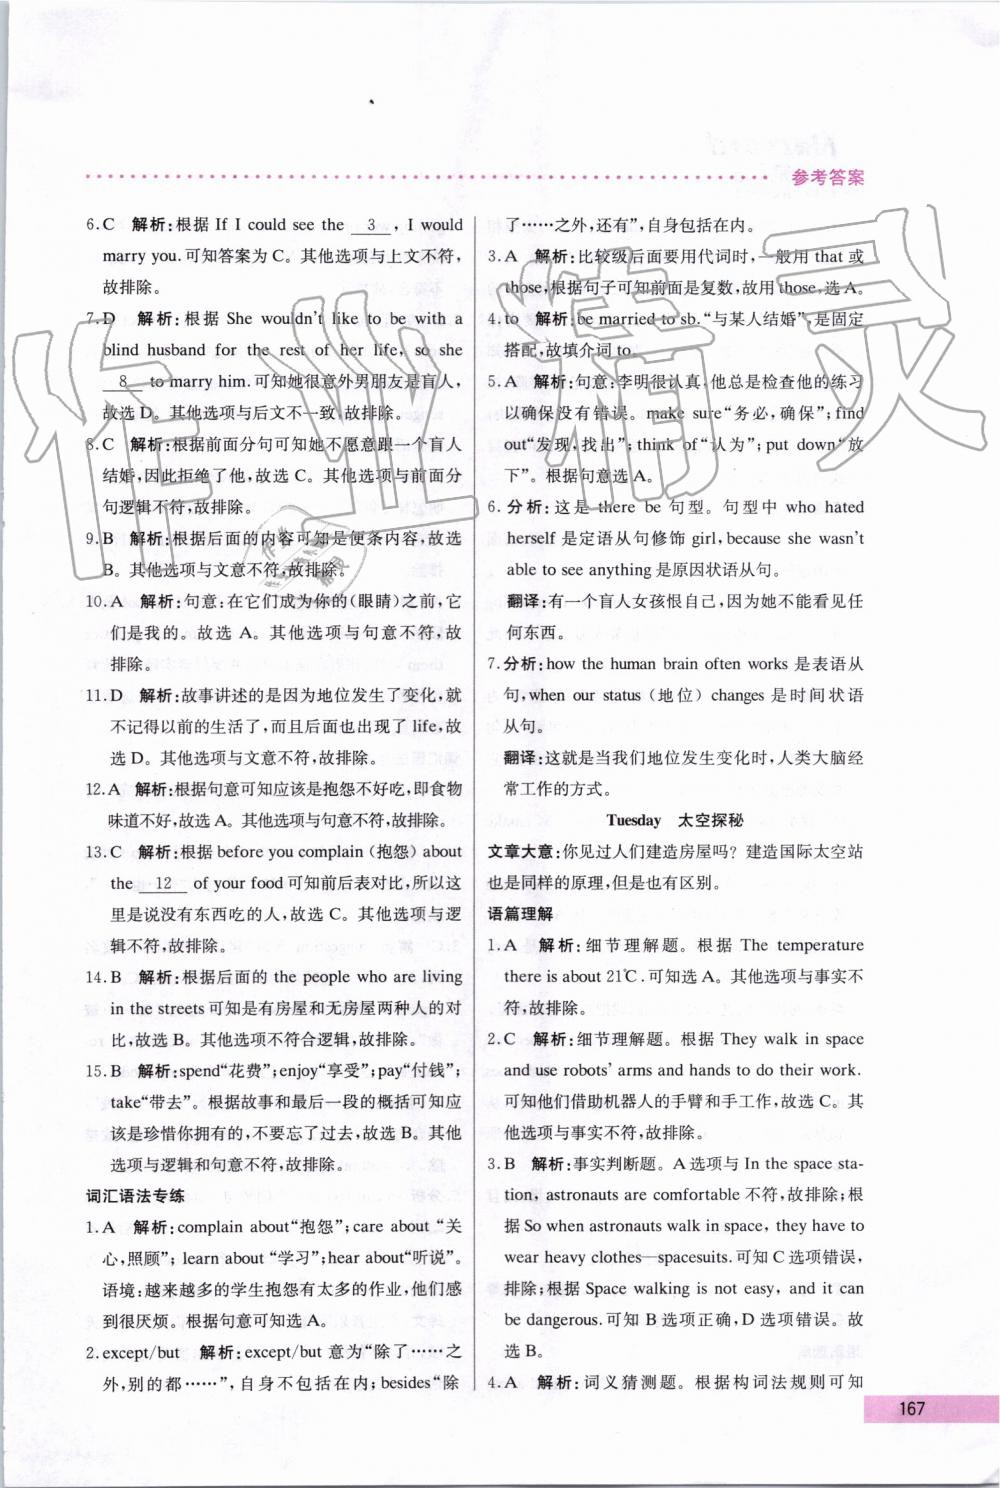 参考答案
6.C 解析:根据 If I could see the 3 , I would
marry you. 可知答案为 C。其他选项与上文不符,
故排除。
7.D 解析:根据 She wouldn't like to be with a
blind husband for the rest of her life, so she
8 to marry him. 可知她很意外男朋友是盲人,
故选 D。其他选项与后文不一致,故排除。
8.C 解析:根据前面分句可知她不愿意跟一个盲人
结婚,因此拒绝了他,故选 C。其他选项与前面分
句逻辑不符,故排除。
9.B 解析:根据后面的内容可知是便条内容,故选
B。其他选项与文意不符,故排除。
10.A 解析:句意:在它们成为你的(眼睛)之前,它
们是我的。故选 A。其他选项与句意不符,故
排除。
11.D 解析:故事讲述的是因为地位发生了变化,就
不记得以前的生活了,而且后面也出现了 life,故
选 D。其他选项与文意不符,故排除。
12.A 解析:根据句意可知应该是抱怨不好吃,即食物
味道不好,故选 A。其他选项与句意不符,故排除。
13.C 解析:根据 before you complain (抱怨) about
the 12 of your food 可知前后表对比,所以这
里是说没有东西吃的人,故选 C。其他选项与逻
辑不符,故排除。
14.B 解析:根据后面的 the people who are living
in the streets 可知是有房屋和无房屋两种人的对
比,故选 B。其他选项不符合逻辑,故排除。
15.B 解析:spend“花费”;enjoy“享受”;pay“付钱”;
take“带去”。根据故事和最后一段的概括可知应
该是珍惜你拥有的,不要忘了过去,故选 B。其他
选项与逻辑和句意不符,故排除。
词汇语法专练
1.A 解析:complain about“抱怨”;care about“关
心,照顾”; learn about “学习”;hear about“听说”。
语境:越来越多的学生抱怨有太多的作业,他们感
到很厌烦。根据句意可知选 A。
2.except/but 解析:except/but 意为“除了……之
外,别的都……”,自身不包括在内;besides“除
了……之外,还有”,自身包括在内。
3.A 解析:比较级后面要用代词时,一般用 that 或
those,根据句子可知前面是复数,故用 those,选 A。
4.to 解析:be married to sb. “与某人结婚”,是固定
搭配,故填介词 to。
5.A 解析:句意:李明很认真,他总是检查他的练习
以确保没有错误。make sure“务必,确保”;find
out“发现,找出”;think of“认为”;put down“放
下”。根据句意选 A。
6.分析:这是 there be 句型。句型中 who hated
herself 是定语从句修饰 girl, because she wasn't
able to see anything 是原因状语从句。
翻译:有一个盲人女孩恨自己,因为她不能看见任
何东西。
7.分析:how the human brain often works 是表语从
句,when our status (地位) changes 是时间状语
从句。
翻译:这就是当我们地位发生变化时,人类大脑经
常工作的方式。
Tuesday 太空探秘
文章大意:你见过人们建造房屋吗?建造国际太空站
也是同样的原理,但是也有区别。
语篇理解
1.A 解析:细节理解题。根据 The temperature
there is about 21℃. 可知选 A。其他选项与事实不
符,故排除。
2.C 解析:细节理解题。根据 They walk in space
and use robots' arms and hands to do their work.
可知他们借助机器人的手臂和手工作,故选 C。其
他选项与事实不符,故排除。
3.B 解析:事实判断题。A 选项与 In the space sta-
tion, astronauts are comfortable 不符,故排除;根
据 So when astronauts walk in space, they have to
wear heavy clothes—spacesuits. 可知 C 选项错误,
排除;根据 Space walking is not easy, and it can
be dangerous. 可知 B 选项正确,D 选项错误。故
选 B。
4.A 解析:词义猜测题。根据构词法规则可知
167
作业精灵